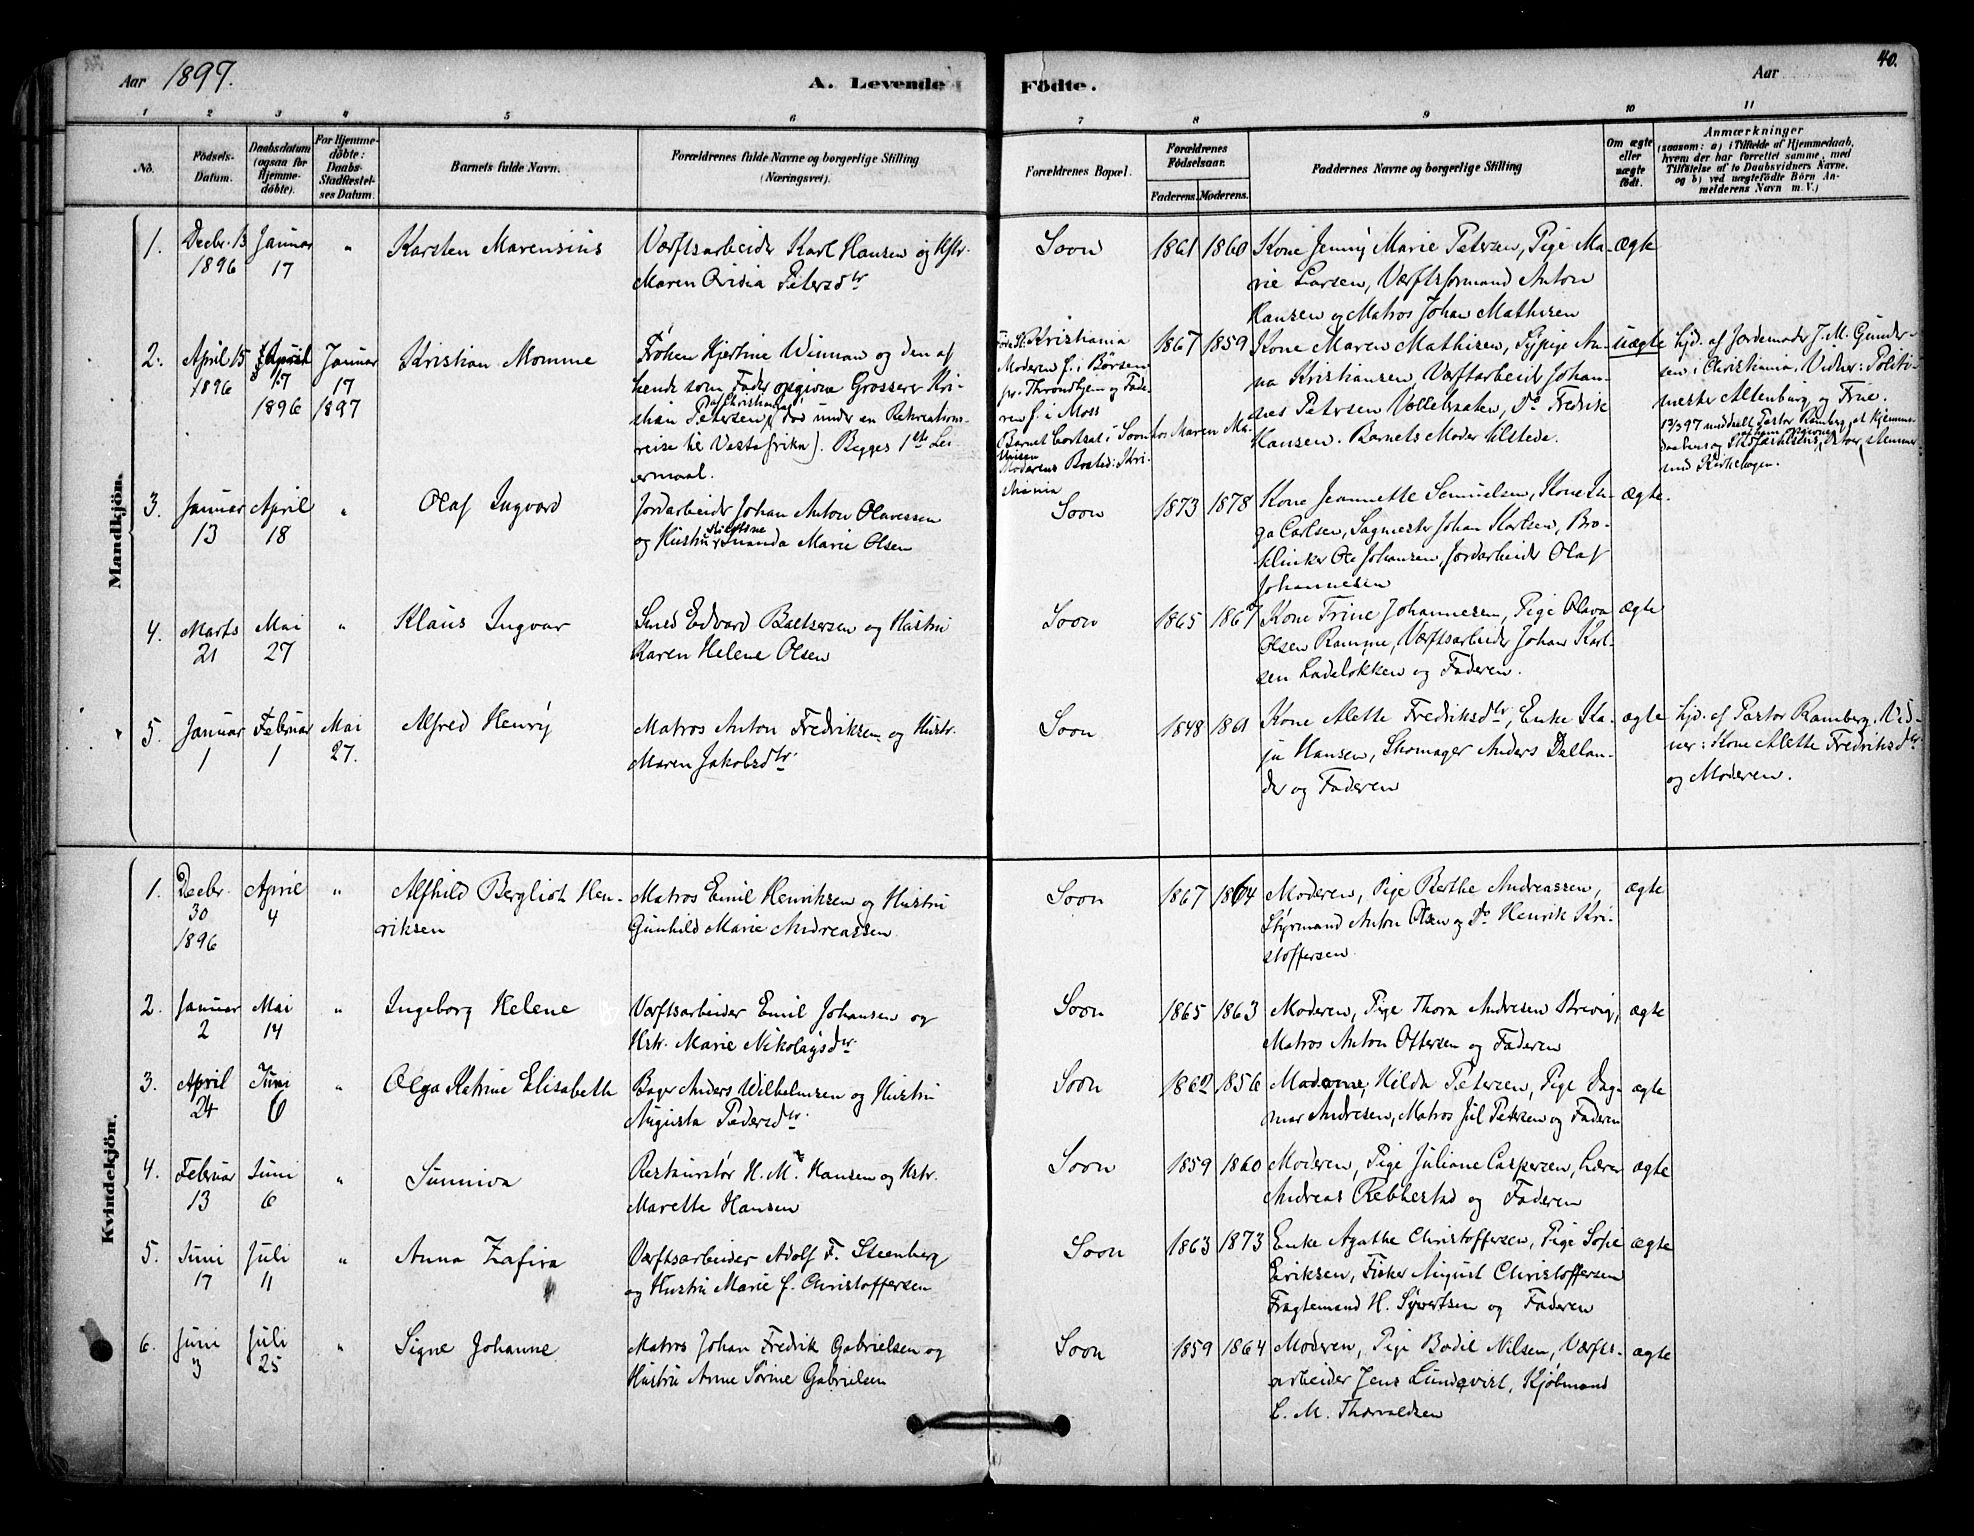 Aar 1897.
A. Levende
Födte.
Aar
40.
1 2 3 4 5 6 7 8 9 10 11
No.
Födsels-
Datum.
Daabsdatum
(ogsaa for
Hjemme-
døbte).
For Hjemme-
døbte:
Daabs-
Stadfæstel-
ses Datum.
Barnets fulde Navn.
Forældrenes fulde Navne og borgerlige Stilling
(Næringsvei).
Forældrenes Bopæl.
Forældrenes
Fødselsaar.
Faderens. Moderens.
Faddernes Navne og borgerlige Stilling
Om ægte
eller
uægte
födt.
Anmærkninger
(saasom: a) i Tilfælde af Hjemmedaab,
hvem der har forrettet samme, med
Tilföielse af to Daabsvidners Navne,
og b) ved uægtefödte Börn An-
melderens Navn m. V.)
Mandkjön.
1. Decbr. 13
1896
Januar
17
"
Karsten Marensius
Værftsarbeider Karl Hansen og Hstr.
Maren Ovidia Petersdtr
Soon
1861 1860
Kone Jenny Marie Petersen, Pige Ma-
rie Larsen, Værftsformand Anton
Hansen og Matros Johan Mathisen
ægte
2. April 15
1896
April
17
1896
Januar
17
1897
Kristian Momme
Frøken Hjertine Winnan og den af
hende som Fader opgivne Grosserer Kri-
stian Petersen af Christiania (død under en Rekreations-
reise til Vestafrika). Begges 1st Lei-
ermaal.
Kristiania
Moderen f. i Børsen
pr. Throndhjem og Fade-
ren f. i Moss
Barnet bortsat i Soon hos Maren Ma-
thisen
Moderens Bosted: Kri-
stiania
1867 1859
Kone Maren Mathisen, Sypige An-
na Kristiansen, Værftsarbeid. Johan-
nes Petersen Vollebraaten, Do Fredrik
Hansen. Barnets Moder tilstede.
uægte
hjd. af Jordemoder J. M. Gunder-
sen i Christiania, Vidner: Politi-
mester Altenburg og Frue.
13/3 97 meddelt Pastor Ramberg, at Hjemme-
med Kirkebogen.
3. Januar
13
April
18
"
Olaf Ingvard
Jordarbeider Johan Anton Olavessen
og Hustru Nanda Marie Olsen
Soon
1873 1878
Kone Jeannette Semuelsen, Kone In-
ga Carlsen, Sagmester Johan Karlsen, Bro-
klinker Ole Johansen, Jordarbeider Olaf
Johannesen
ægte.
4. Marts
21
Mai
27
"
Klaus Ingvar
Smed Edvard Baltsersen og Hustru
Karen Helene Olsen
Soon
1865 1867
Kone Trine Johannesen, Pige Olava
Olsen Ramme, Værftsarbeider Johan Karl-
sen Ladeløkken og Faderen.
ægte
5. Januar
1
Februar
1
Mai
27.
Alfred Henry
Matros Anton Fredriksen og Hustr.
Maren Jakobsdtr
Soon
1848 1861
Kone Alette Fredriksdtr, Enke Ka-
ja Hansen, Skomager Anders Dellan-
der og Faderen
ægte
hjd. af Pastor Ramberg. Vid-
ner: Kone Alette Fredriksdtr
og Moderen.
Kvindekjön.
1. Decbr.
30
1896
April
4
"
Alfhild Bergliot Hen-
riksen
Matros Emil Henriksen og Hustru
Gunhild Marie Andreassen
Soon
1867 1864
Moderen, Pige Berthe Andreassen,
Styrmand Anton Olsen og Do Henrik Kri-
stoffersen
ægte
2. Januar
2
Mai
14
"
Ingeborg Helene
Værftsarbeider Emil Johansen og
Hstr. Marie Nikolaysdtr
Soon
1865 1863
Moderen, Pige Thora Andresen Brevig,
Matros Anton Ottersen og Faderen
ægte
3. April
24
Juni
6
"
Olga Katrine Elisabeth
Bager Anders Wilhelmsen og Hustru
Augusta Pedersdtr
Soon
1862 1856
Madame Hilda Petersen, Pige Dag-
mar Andresen, Matros Jul Petersen og Faderen
ægte
4. Februar
13
Juni
6
"
Sunniva
Restauratør H. M. Hansen og Hstr.
Marette Hansen
Soon
1859 1860
Moderen, Pige Juliane Caspersen, Lærer
Andreas Rebbestad og Faderen
ægte
5. Juni
17
Juli
11
"
Anna Zafira
Værftsarbeider Adolf F. Steenberg
og Hustru Marie J. Christoffersen
Soon
1863 1873
Enke Agathe Christoffersen, Pige Sofie
Eriksen, Fisker August Christoffersen
Fragtemand H. Syvertsen og Faderen
ægte
6. Juni
3
Juli
25
"
Signe Johanne
Matros Johan Fredrik Gabrielsen og
Hustru Anne Sørine Gabrielsen
Soon
1859 1864
Moderen, Pige Bodil Nilsen, Værfts-
arbeider Jens Lundqvist, Kjøbmand
L. M. Thorvaldsen
ægte